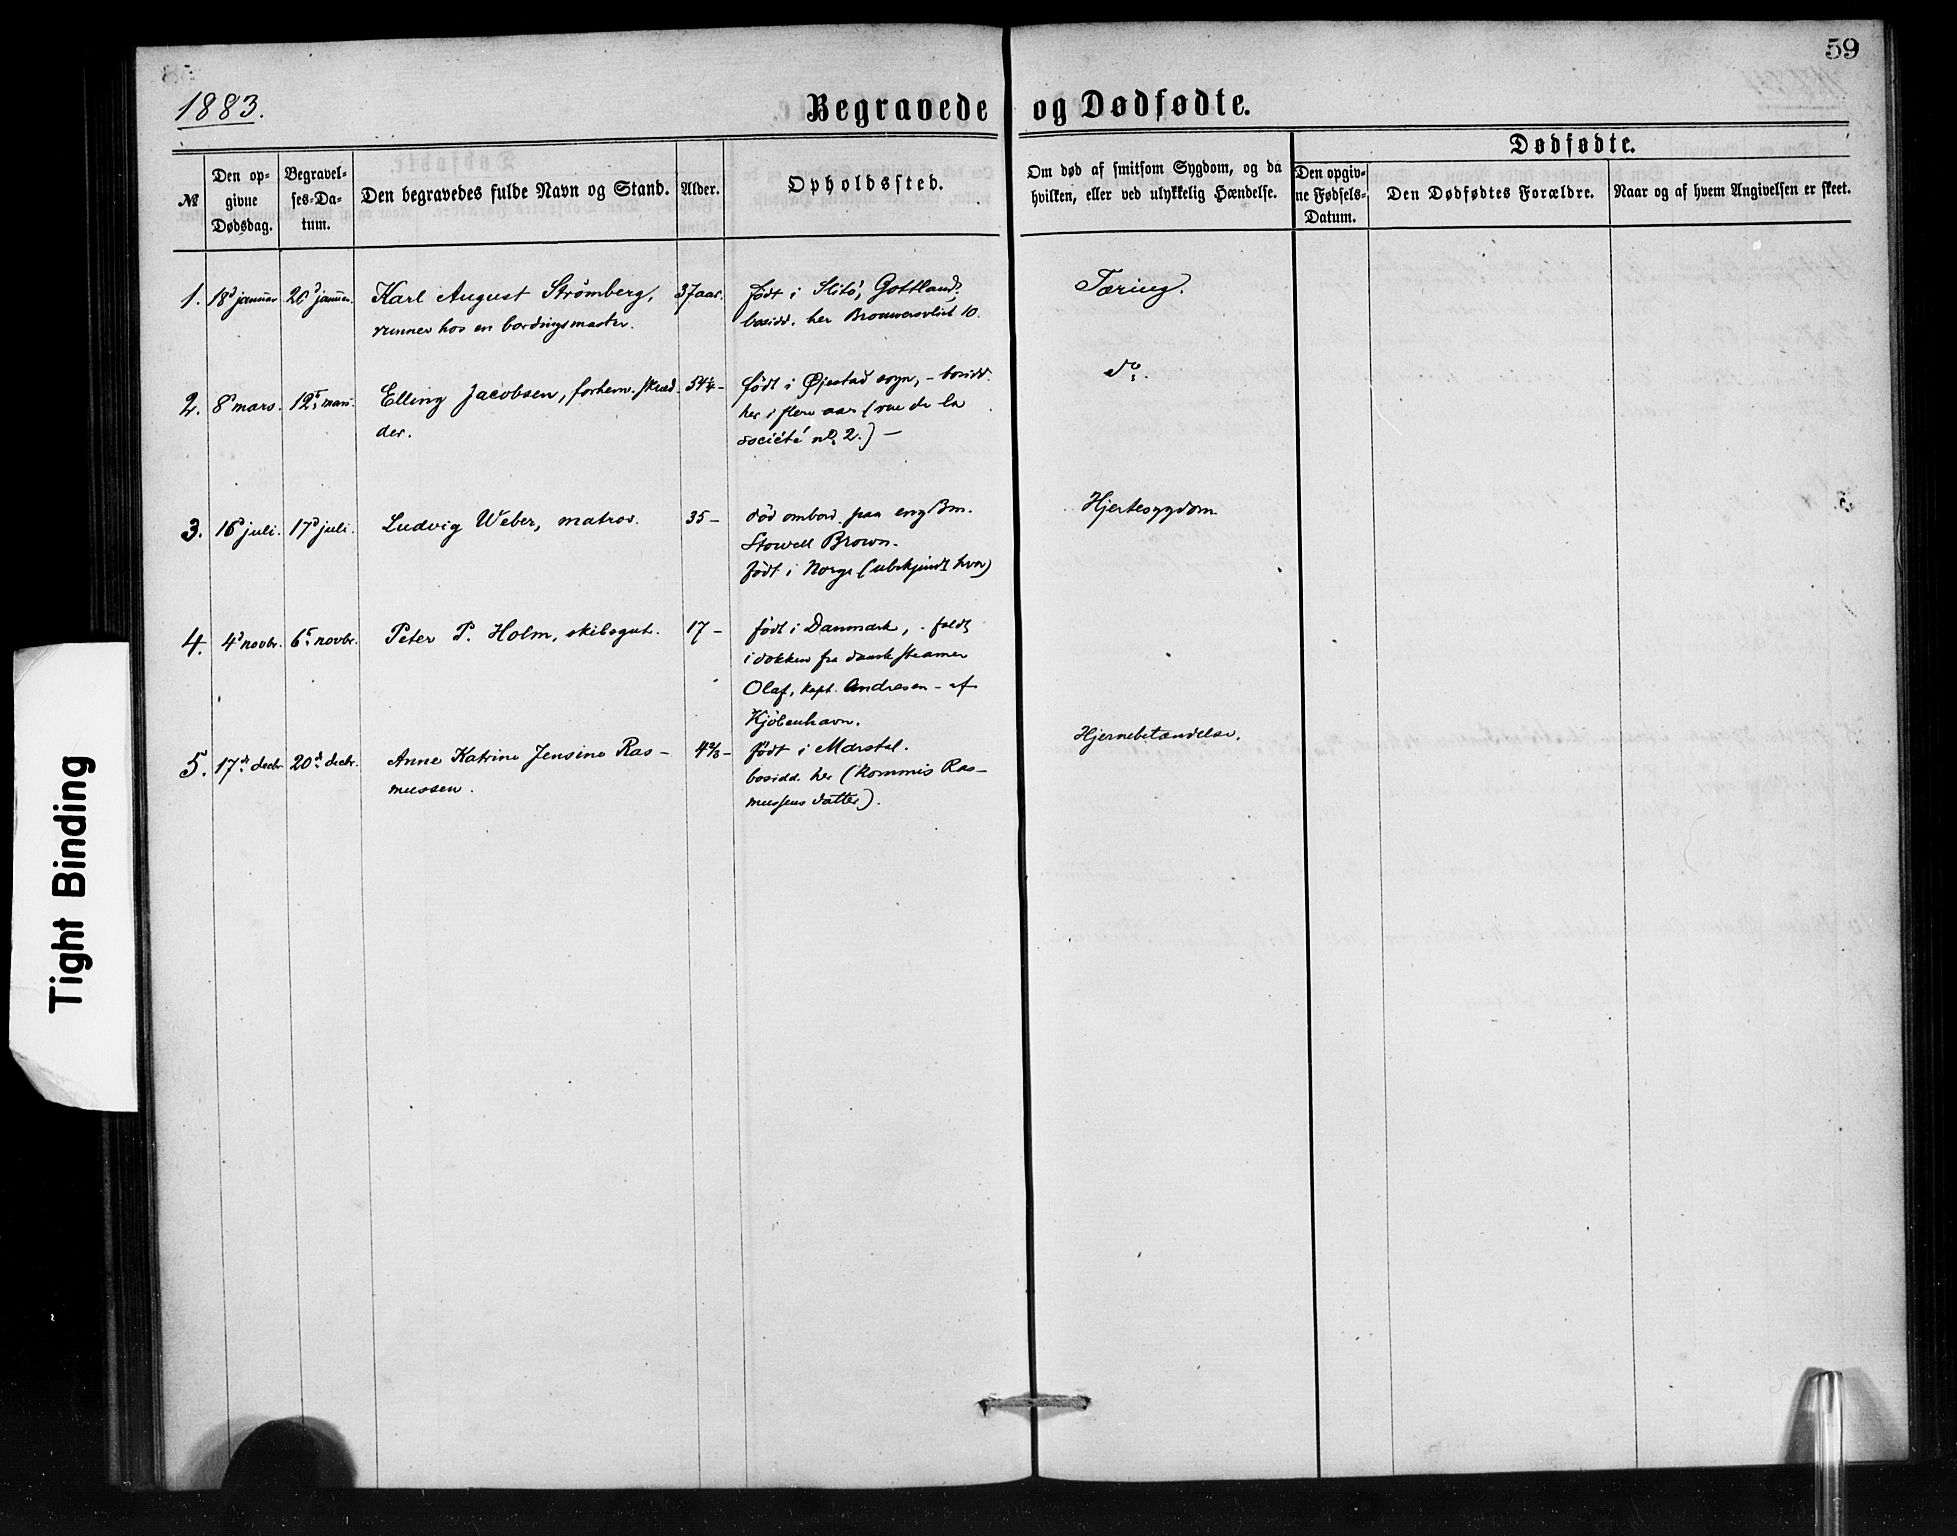 59
1883.
Begravede og Dødfødte.
Dødfødte.
№
Den opgivne Dødsdag.
Begravelses-Datum.
Den begravedes fulde Navn og Stand.
Alder.
Opholdssted.
Om død af smitsom Sygdom, og da
hvilken, eller ved ulykkelig Hændelse.
Den opgivne Fødsels-Datum.
Den Dødfødtes Forældre.
Naar og af hvem Angivelsen er skeet.
1. 18d januar 20d januar. Karl August Strømberg, 37 aar. født i Slitö, Gottland, Tæring.
runner hos en bordingmaster. bosidd. her 10.
2. 8d mars. 12t mars. Elling Jacobsen, forhenv. skræd- 54¼ - født i Øjestad sogn, - bosidd. do.
der. her i flere aar (rue de la
société no 2.) —
3. 16d juli. 17d juli. Ludvig Weber, matros. 35 - død ombord paa eng. Hjertesygdom
Stowell Brown.
født i Norge (ubekjendt hvor)
4. 4d novbr. 6t novbr. Peter P. Holm, skibsgut. 17 - født i Danmark, - faldt
i dokken fra dansk steamer
Olaf, kapt. Andresen - af
Kjöbenhavn.
5. 17de decbr. 20de decbr. Anne Katrine Jensine Ras- 4⅔ - født i Marstal. Hjernebetændelse.
mussen. bosidd. her (kommis Ras-
mussens datter).
Tight Binding